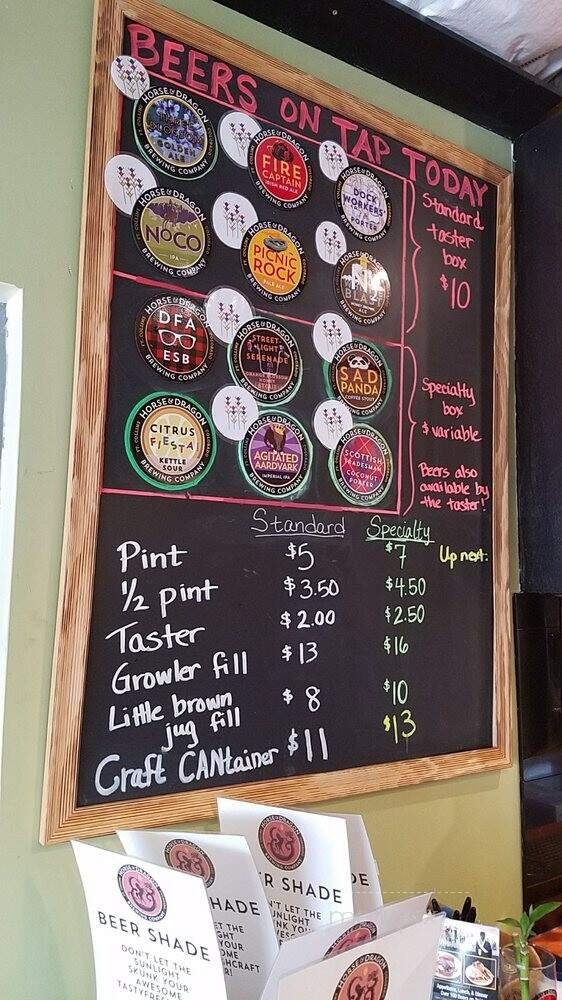 BEERS ON TAP TODAY
HORSE & DRAGON
GOLDEN
ALE
BREWING COMPANY
HORSE & DRAGON
FIRE
CAPTAIN
IRISH RED ALE
BREWING COMPANY
HORSE & DRAGON
DOCK
WORKERS'
PORTER
BREWING COMPANY
HORSE & DRAGON
NOCO
IPA
BREWING COMPANY
HORSE & DRAGON
PICNIC
ROCK
PALE ALE
BREWING COMPANY
HORSE & DRAGON
BREWING COMPANY
Standard
taster
box
$10
HORSE & DRAGON
DFA
ESB
BREWING COMPANY
HORSE & DRAGON
STREET
LIGHT
SERENADE
ORANGE BLOSSOM
HONEY
BREWING COMPANY
HORSE & DRAGON
SAD
PANDA
COFFEE STOUT
BREWING COMPANY
HORSE & DRAGON
FT. COLLINS
COLORADO
CITRUS
FIESTA!
KETTLE
SOUR
BREWING COMPANY
HORSE & DRAGON
AGITATED
AARDVARK
IMPERIAL IPA
BREWING COMPANY
HORSE & DRAGON
SCOTTISH
TRADESMAN
COCONUT
PORTER
BREWING COMPANY
Specialty
box
$ variable
Beers also
available by
the taster!
Standard Specialty
Pint $5 $7 Up next:
1/2 pint $3.50 $4.50
Taster $2.00 $2.50
Growler fill $13 $16
Little brown
jug fill $8 $10
Craft CANtainer $11 $13
HORSE & DRAGON
BREWING COMPANY
BEER SHADE
DON'T LET THE
SUNLIGHT
SKUNK YOUR
AWESOME